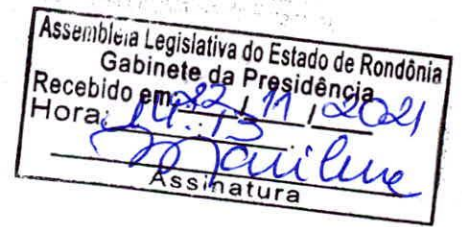 Assembleia Legislativa do Estado de Rondônia
Gabinete da Presidência
Recebido em 22 / 11 / 2021
Hora: 14:13
Marilene
Assinatura